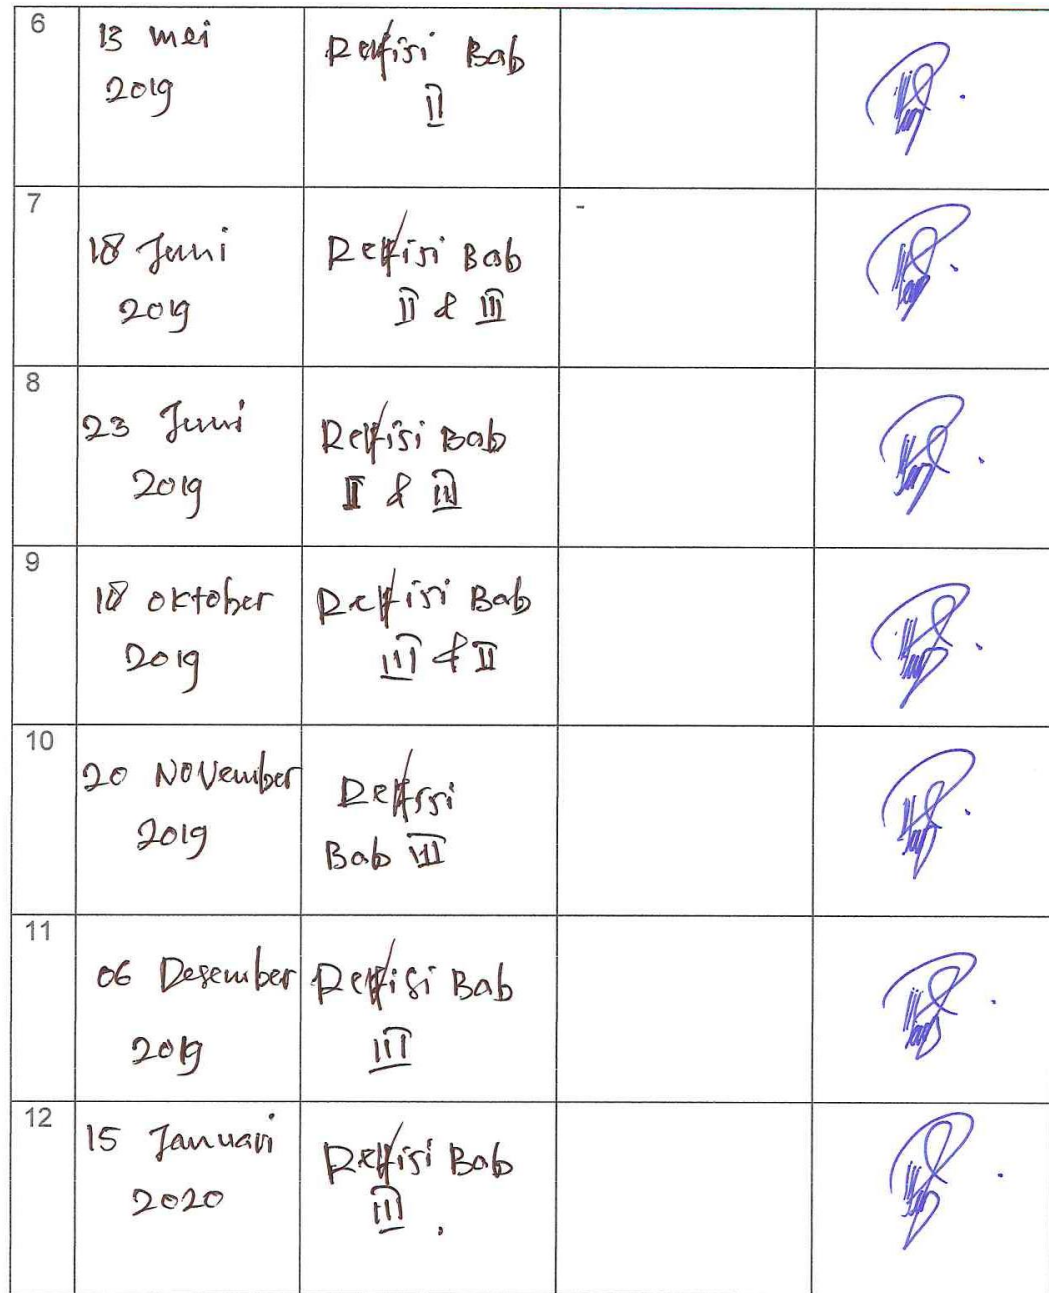 6
13 mei
2019
Reffisi Bab
II
7
18 Juni
2019
Reffisi Bab
II & III
-
8
23 Juni
2019
Reffisi Bab
II & III
9
18 oktober
2019
Reffisi Bab
III & II
10
20 November
2019
Reffisi
Bab III
11
06 Desember
2019
Reffisi Bab
III
12
15 Januari
2020
Reffisi Bab
III.